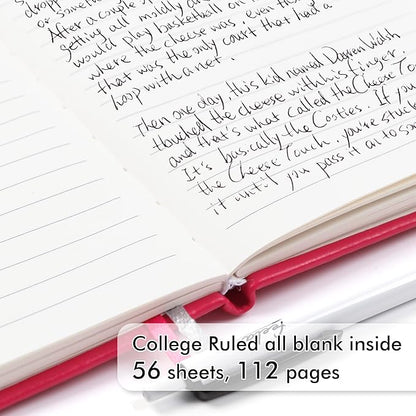 or someth
After a couple of
getting all moldy a
would play basketball on
where the cheese was, even
that was the only court that had a
hoop with a net.
Then one day, this kid named Darren Walsh
touched the cheese with his finger,
and that's what called the Cheese To
It's basically the Cooties. If you
the Cheese Touch, you're stuck
it until you pass it on to so
College Ruled all blank inside
56 sheets, 112 pages